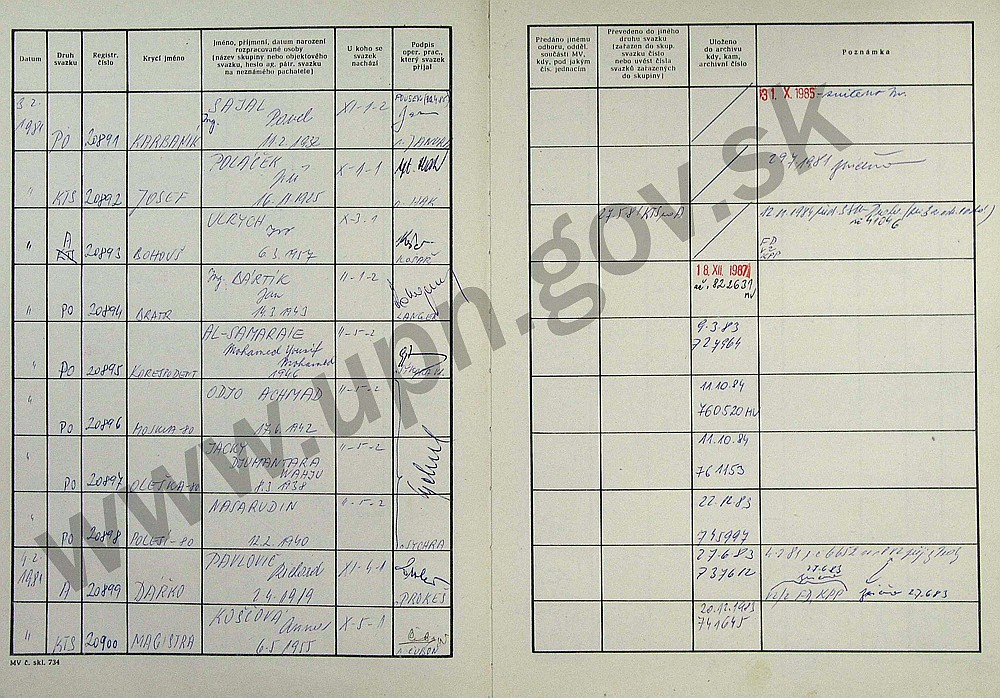 Datum
Druh svazku
Registr. číslo
Krycí jméno
Jméno, příjmení, datum narození
rozpracované osoby
(název skupiny nebo objektového
svazku, heslo ag. pátr. svazku
na neznámého pachatele)
U koho se
svazek
nachází
Podpis
oper. prac.,
který svazek
přijal
Předáno jinému
odboru, odděl.
součásti MV,
kdy, pod jakým
čís. jednacím
Převedeno do jiného
druhu svazku
(zařazen do skup.
svazku číslo
nebo uvést čísla
svazků zařazených
do skupiny)
Uloženo
do archivu
kdy, kam,
archivní číslo
Poznámka
3.2.
1981
PO 20891 KARBANÍK
SAJAL
Ing. Pavel
11.2.1932
XI-1-2
31. X. 1985
" KTS 20892 JOSEF
POLÁČEK
Jiří
16.11.1925
X-1-1
HAK
29.7.1981
" A
KTS 20893 BOHOUŠ
ULRYCH
6.3.1957
X-3-1
KOSAŘ
27.5.81 KTS na A
12.11.1984
FD
KPP
" PO 20894 BRATR
Ing. BARTÍK
Jan
14.3.1943
II-1-2
LANGER
18. XII. 1987
822631
MV
" PO 20895 KORESPODENT
AL-SAMARAIE
Mohamed Yousif
Mohamed
1946
II-5-2
9.3.83
727964
" PO 20896 MOSKVA-80
ODJO ACHMAD
17.6.1942
II-5-2
11.10.84
760520 MV
PO 20897 OLEŠKA-80
JACKY
DJUHANTARA
WAHJU
8.3.1938
II-5-2
11.10.84
761153
" PO 20898 POLETI-80
NASARUDIN
12.2.1940
II-5-2
SYCHRA
22.12.83
745997
4.2.
1981
A 20899 DÁŘKO
PAVLOVIČ
Richard
2.4.1919
XI-4-1
PROKEŠ
27.6.83
737612
27.6.83
FD, KPP
27.6.83
" KTS 20900 MAGISTRA
KOŠČOVÁ
Anna
6.5.1955
X-5-1
20.12.1983
741645
MV č. skl. 734
www.upn.gov.sk